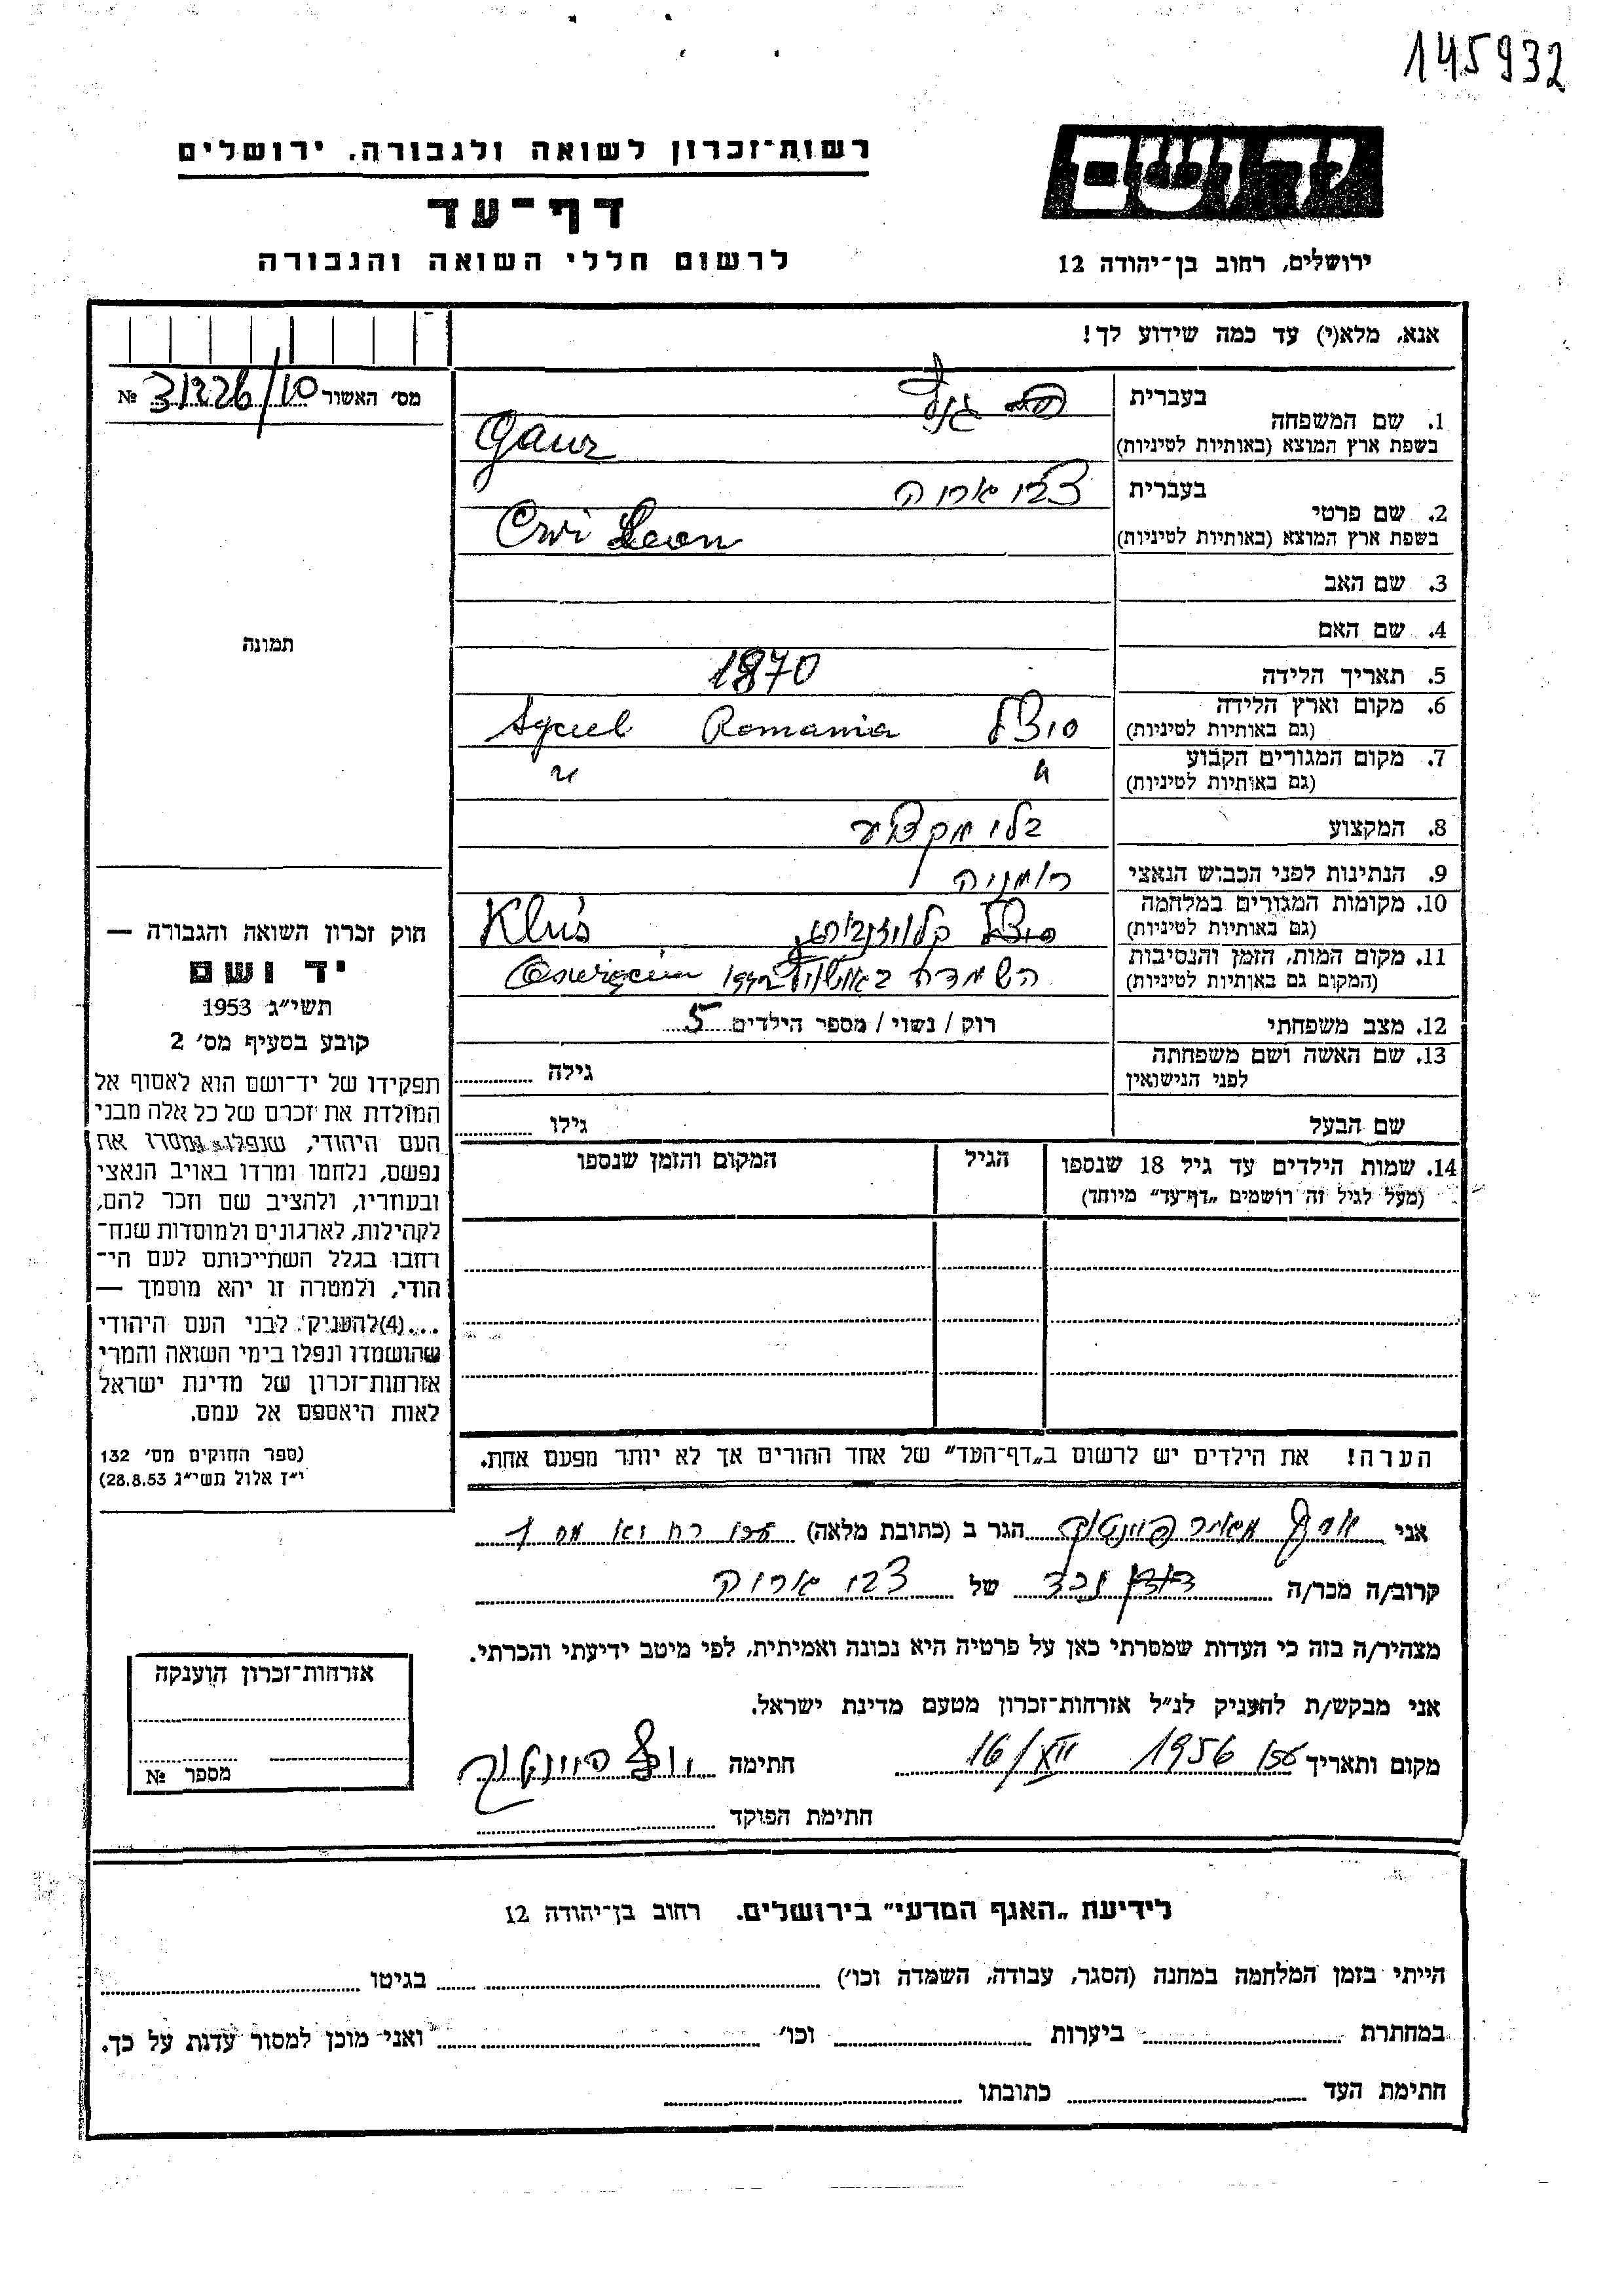 145932
רשות־זכרון לשואה ולגבורה, ירושלים
דף־עד
לרשום חללי השואה והגבורה
יד ושם
ירושלים, רחוב בן־יהודה 12
אנא, מלא(י) עד כמה שידוע לך!
מס׳ האשור 31226/10 №
1. שם המשפחה
בעברית
בשפת ארץ המוצא (באותיות לטיניות)
2. שם פרטי
בעברית צבי
בשפת ארץ המוצא (באותיות לטיניות) Cwi Leon
3. שם האב
4. שם האם
5. תאריך הלידה 1870
6. מקום וארץ הלידה
(גם באותיות לטיניות) Romania
7. מקום המגורים הקבוע
(גם באותיות לטיניות)
8. המקצוע בלי מקצוע
9. הנתינות לפני הכבוש הנאצי רומניה
10. מקומות המגורים במלחמה
(גם באותיות לטיניות) Kluś
11. מקום המות, הזמן והנסיבות
(המקום גם באותיות לטיניות) השמדה
12. מצב משפחתי רוק / נשוי / מספר הילדים 5
13. שם האשה ושם משפחתה
לפני הנישואין גילה
שם הבעל גילו
14. שמות הילדים עד גיל 18 שנספו הגיל המקום והזמן שנספו
(מעל לגיל זה רושמים „דף־עד״ מיוחד)
הערה! את הילדים יש לרשום ב„דף־העד״ של אחד ההורים אך לא יותר מפעם אחת.
תמונה
חוק זכרון השואה והגבורה —
יד ושם
תשי״ג 1953
קובע בסעיף מס׳ 2
תפקידו של יד־ושם הוא לאסוף אל
המולדת את זכרם של כל אלה מבני
העם היהודי, שנפלו, ומסרו את
נפשם, נלחמו ומרדו באויב הנאצי
ובעוזריו, ולהציב שם וזכר להם,
לקהילות, לארגונים ולמוסדות שנח־
רחבו בגלל השתייכותם לעם הי־
הודי, ולמטרה זו יהא מוסמך —
...(4) להעניק לבני העם היהודי
שהושמדו ונפלו בימי השואה והמרי
אזרחות־זכרון של מדינת ישראל
לאות היאספם אל עמם.
(ספר החוקים מס׳ 132
י״ז אלול תשי״ג 28.8.53)
אני הגר ב (כתובת מלאה)
קרוב/ה מכר/ה נכד של צבי
מצהיר/ה בזה כי העדות שמסרתי כאן על פרטיה היא נכונה ואמיתית, לפי מיטב ידיעתי והכרתי.
אני מבקש/ת להעניק לנ״ל אזרחות־זכרון מטעם מדינת ישראל.
מקום ותאריך עכו 1956 16/XII חתימה
חתימת הפוקד
אזרחות־זכרון הוענקה
מספר №
לידיעת „האגף המדעי״ בירושלים, רחוב בן־יהודה 12
הייתי בזמן המלחמה במחנה (הסגר, עבודה, השמדה וכו׳) בגיטו
במחתרת ביערות וכו׳ ואני מוכן למסור עדות על כך.
חתימת העד כתובתו